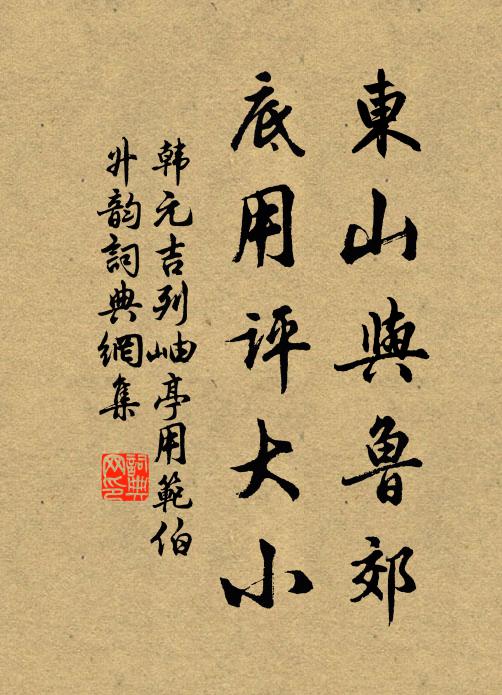 東山與魯郊
底用評大小
韩元吉列岫亭用範伯
外韵詞典網集
詞典网印